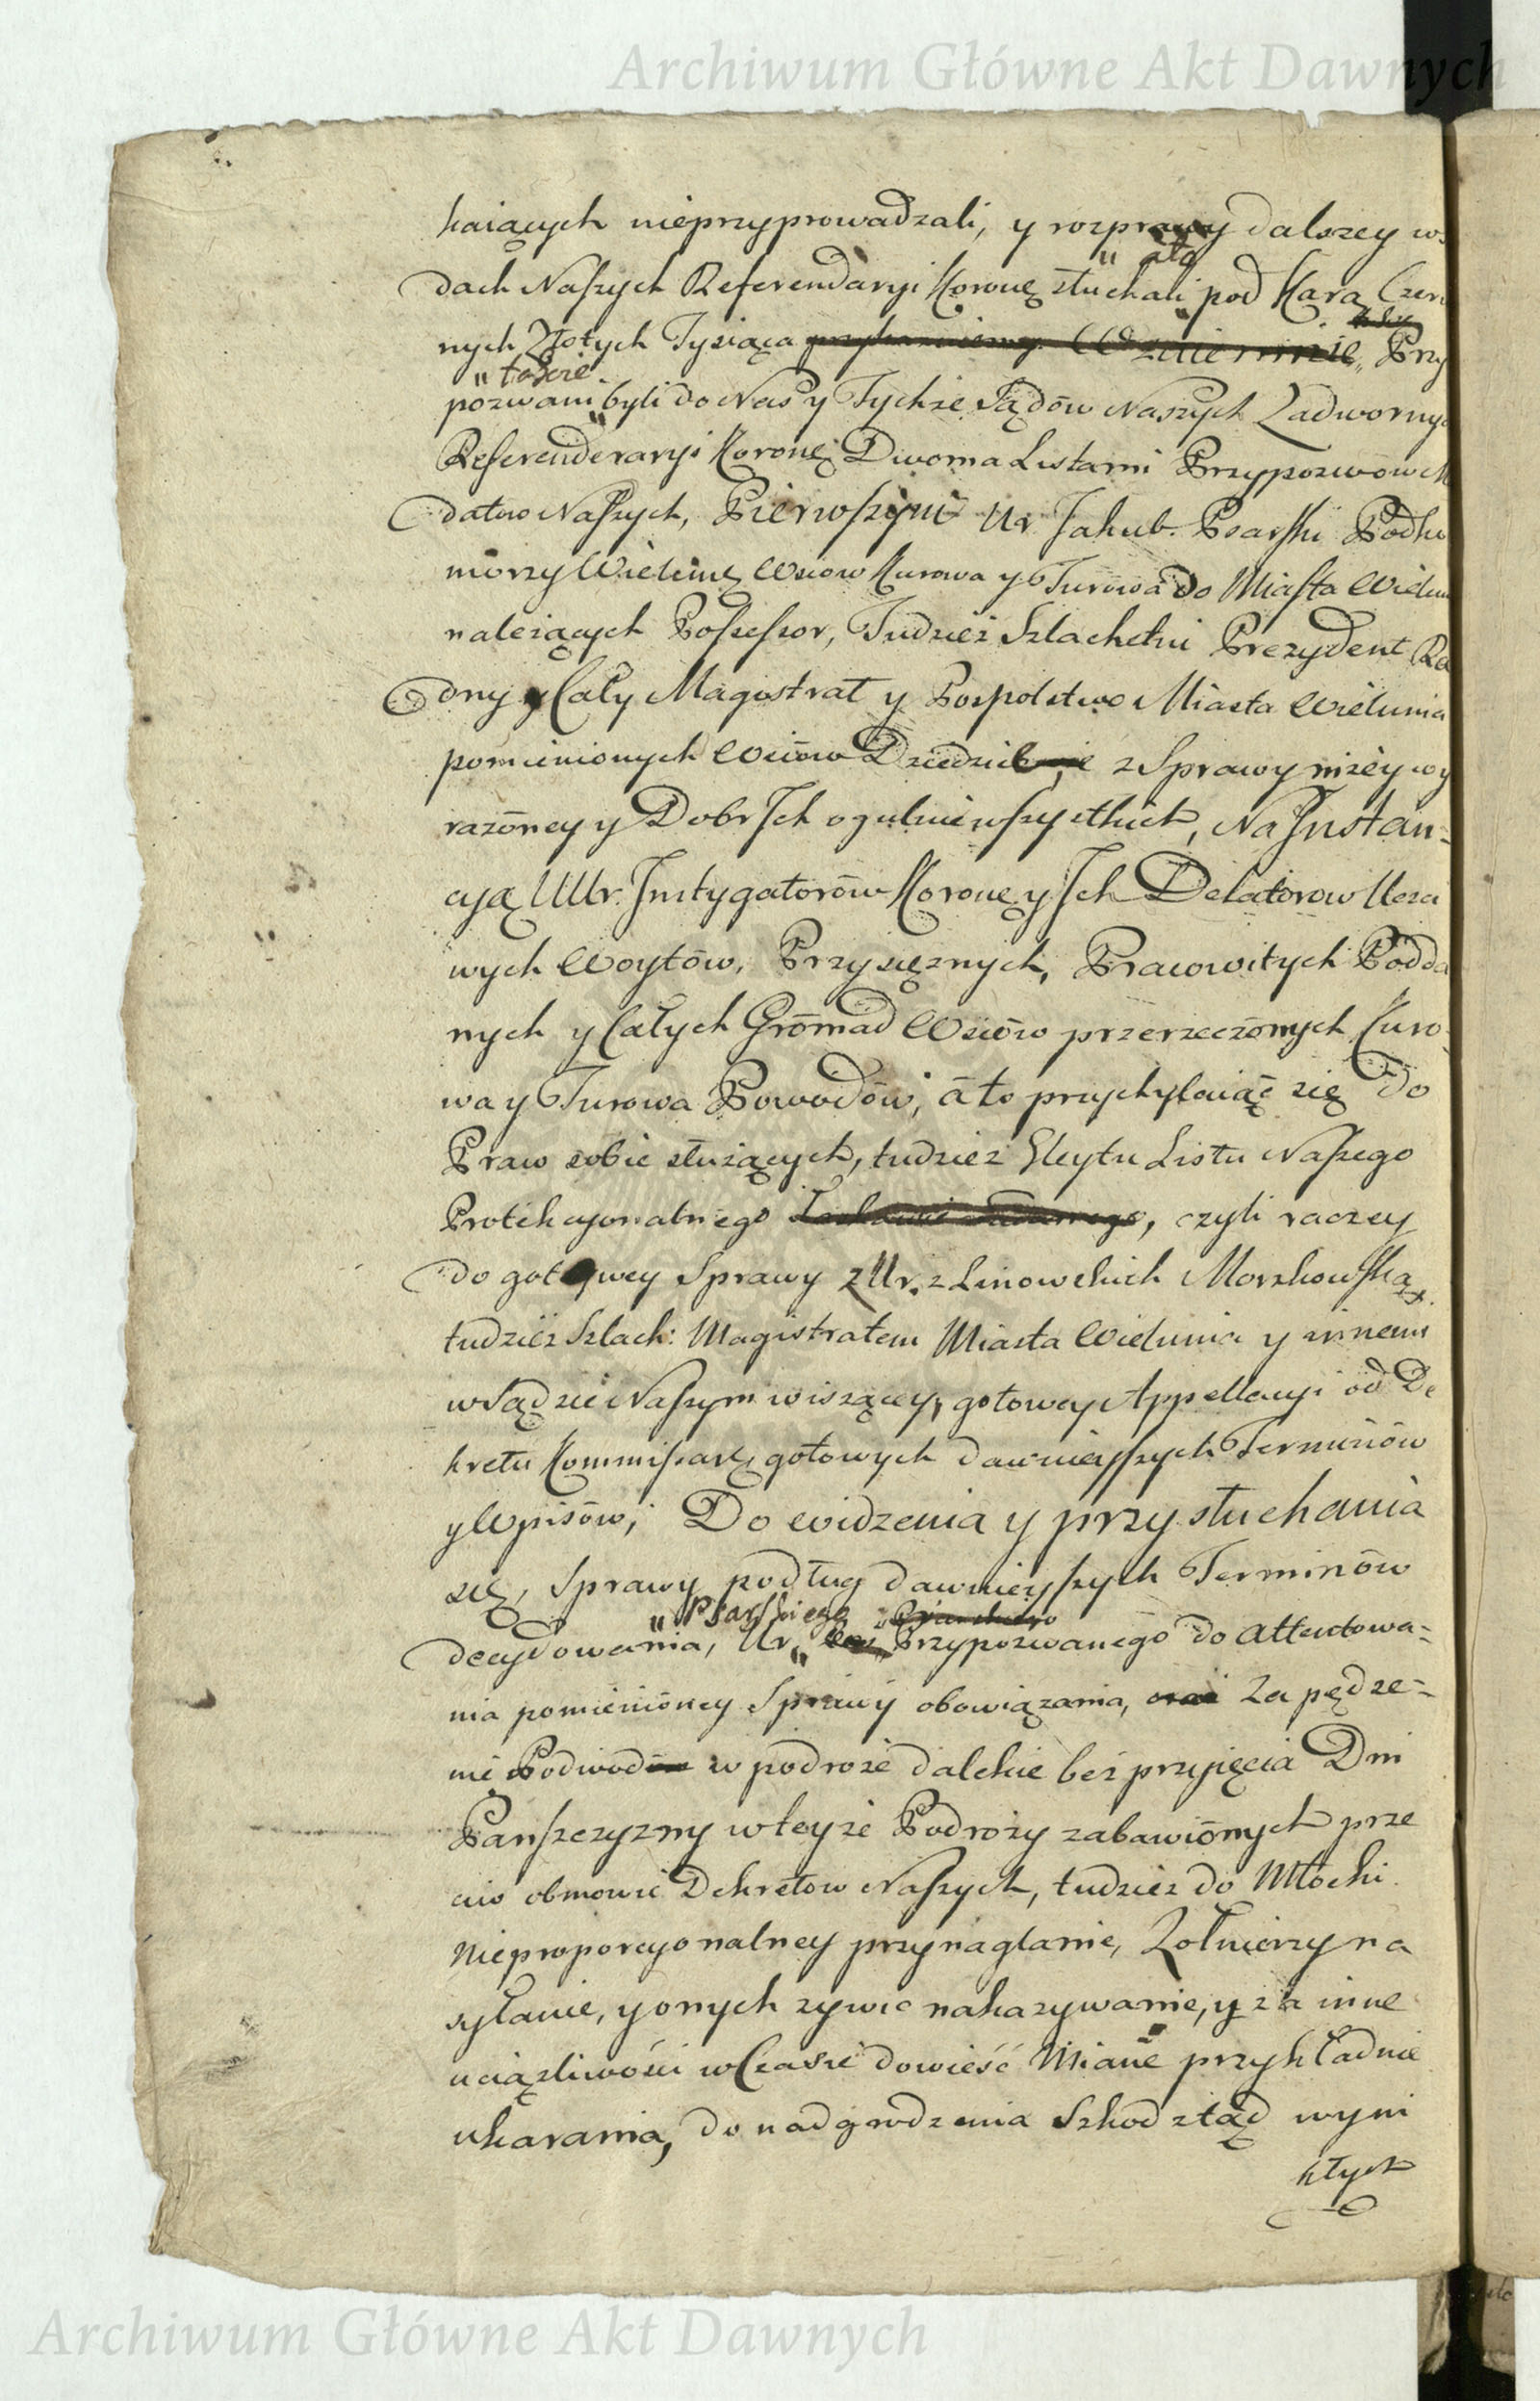 Archiwum Główne Akt Dawnych
kaiących nieprzyprowadzali, y rozprawy dalszey w
dach Naszych Referendaryi Koronę słuchali pod Karą Czer
nych Złotych Tysiąca Przy
także
pozwani byli do Nas y Tychże Sądów Naszych Zadwornych
Referenderaryi Koronę Dwoma Listami Przypozwów M
datow Naszych, Pierwszym Ur. Jakub Psarski Podko
morzy Wieluńę Wsiow Kurowa y Turowa do Miasta Wielun
należących Possessor, Tudzież Szlachetni Prezydent Ra
dny y Cały Magistrat y Pospolstwo Miasta Wielunia
pomienionych Wsiów Dziedzice z Sprawy niżey wy
rażoney y Dobr Jch ogulnie wszystkich, Na Jnstan-
cyą UUr. Jnstygatorów Koronę y Jch Delatorow Ucz
wych Woytów, Przysięznych, Pracowitych Podda
nych y Całych Gromad Wsiów przerzeczonych Kuro-
wa y Turowa Powodów, á to przychylaiąc się do
Praw sobie służących, tudzież Gleytu Listu Naszego
Protekcyonalnego, czyli raczey
do gotowey Sprawy z Ur. z Linowskich Morzkowską
tudzież Szlach: Magistratem Miasta Wielunia y innemi
w Sądzie Naszym wiszącey, gotowey Appellacyi od De
kretu Kommissarę gotowych dawnieyszych Terminów
y Wpisów, Do widzenia y przysłuchania
się, Sprawy podług dawnieyszych Terminów
Psarskiego
decydowania, Ur. Przypozwanego do attentowa-
nia pomienióney Sprawy obowiązania, za pędze-
nie Podwod w podroże dalekie bez przyięcia Dni
Panszczyzny w teyże Podroży zabawiónych prze
ciw obmowie Dekretow Naszych, tudzież do Młocki
Nieproporcyonalney przynaglanie, Zołnierzy na
syłanie, y onych zywic nakazywanie, y za inne
uciązliwości w Czasie dowieść Miane przykładnie
ukarania, do nadgrodzenia Szkod ztąd wyni
kłych
Archiwum Główne Akt Dawnych